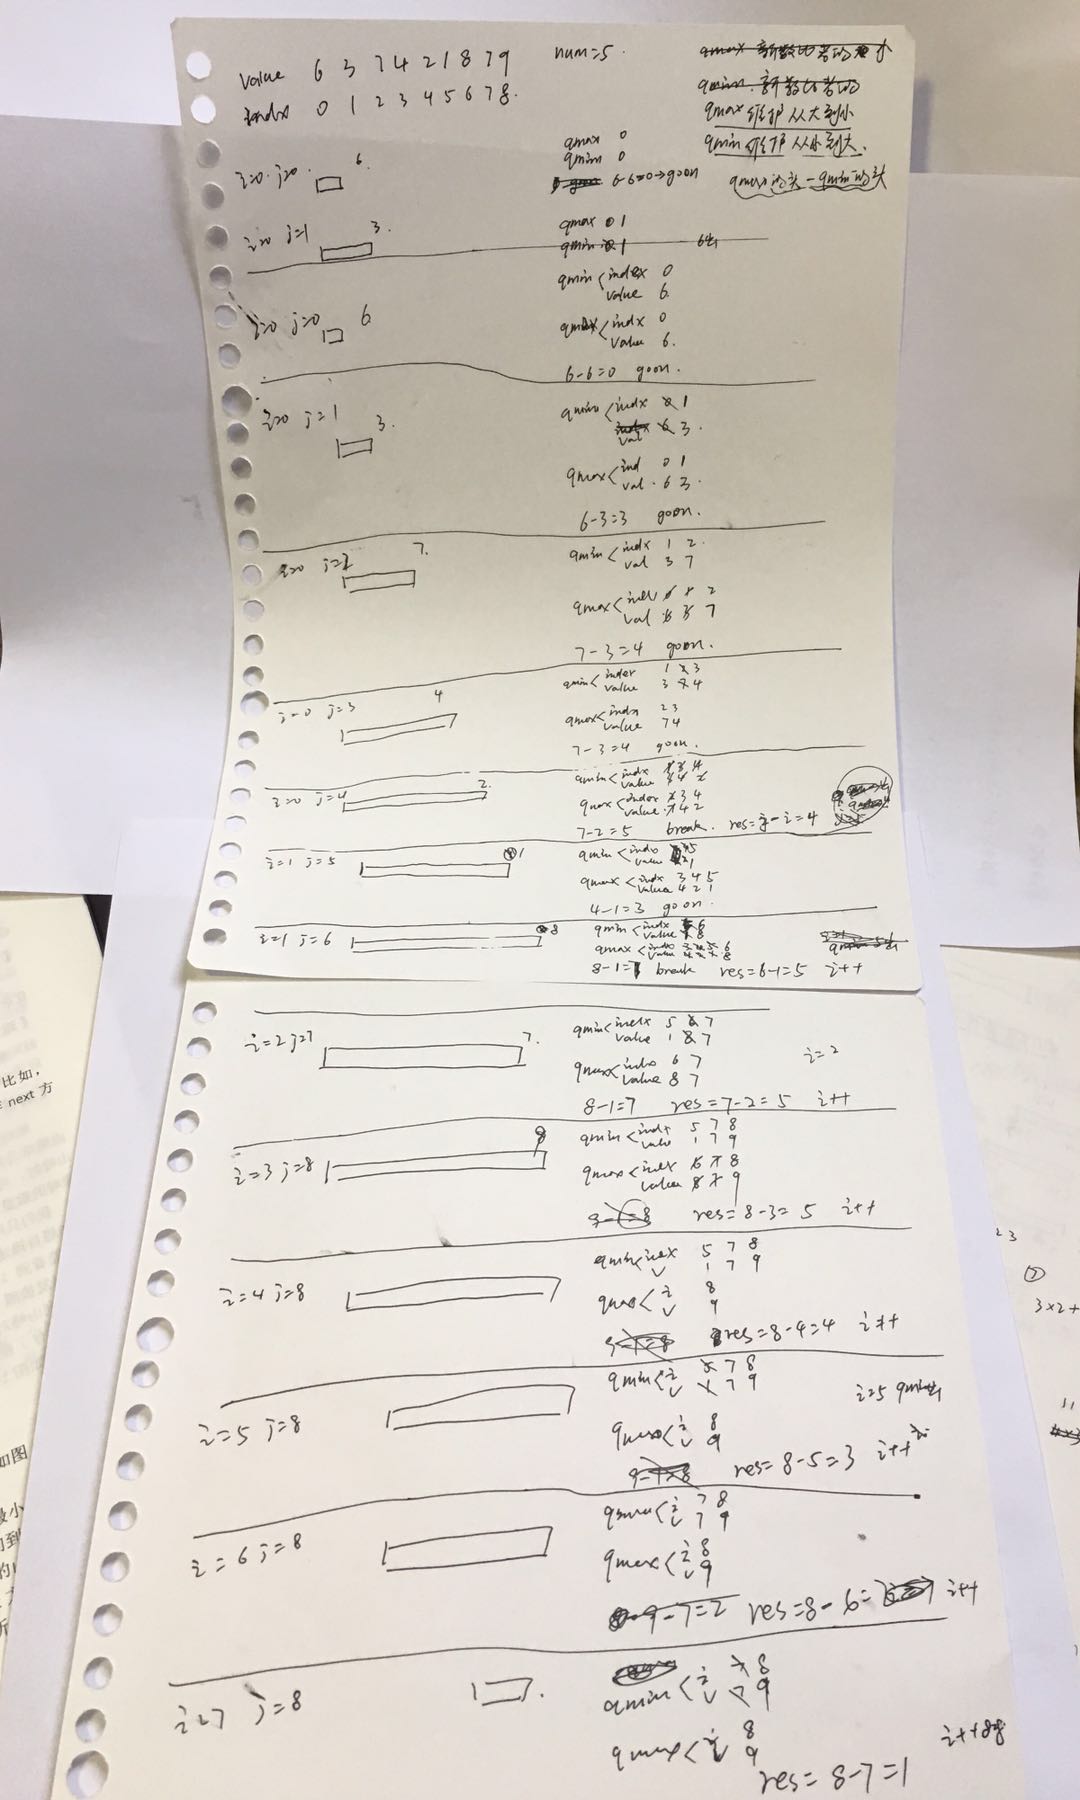 value 6 3 7 4 2 1 8 7 9 num=5.
index 0 1 2 3 4 5 6 7 8.
qmax 维护 从大到小
qmin 维护 从小到大.
qmax的头-qmin的头
i=0. j=0. 6.
qmax 0
qmin 0
6-6=0→goon
i=0 j=1 3.
qmax 0 1
qmin 0 1
i=0 j=0 6
qmin< index 0
value 6.
qmax< indx 0
value 6.
6-6=0 goon.
i=0 j=1 3.
qmin< indx 0 1
val 6 3.
qmax< ind 0 1
val. 6 3.
6-3=3 goon.
i=0 j=2 7.
qmin< indx 1 2
val 3 7
qmax< index 0 1 2
val 6 3 7
7-3=4 goon.
i=0 j=3 4
qmin< index 1 2 3
value 3 7 4
qmax< indx 2 3
value 7 4
7-3=4 goon.
i=0 j=4 2.
qmin< indx 1 3 4
value 3 4 2
qmax< index 2 3 4
value 7 4 2
7-2=5 break. res=j-i=4
i=1 j=5 1
qmin< indx 5
value 1
qmax< indx 3 4 5
value 4 2 1
4-1=3 goon.
i=1 j=6 8
qmin< index 5 6
value 1 8
qmax< index 3 4 5 6
value 4 2 1 8
8-1=7 break res=6-1=5 i++
i=2 j=7 7.
qmin< index 5 6 7
value 1 8 7
i=2
qmax< index 6 7
value 8 7
8-1=7 res=7-2=5 i++
i=3 j=8 9
qmin< indx 5 7 8
value 1 7 9
qmax< index 6 7 8
value 8 7 9
9-1=8 res=8-3=5 i++
i=4 j=8
qmin< index 5 7 8
v 1 7 9
qmax< i 8
v 9
9-1=8 res=8-4=4 i++
i=5 j=8
qmin< i 5 7 8
v 1 7 9
i=5 qmin
qmax< i 8
v 9
9-1=8 res=8-5=3 i++
i=6 j=8
qmin< i 7 8
v 7 9
qmax< i 8
v 9
9-7=2 res=8-6= i++
i=7 j=8
qmin< i 7 8
v 7 9
qmax< i 8
v 9
i++
res=8-7=1
比如,
next 方
如图
2 3
②
3×2+